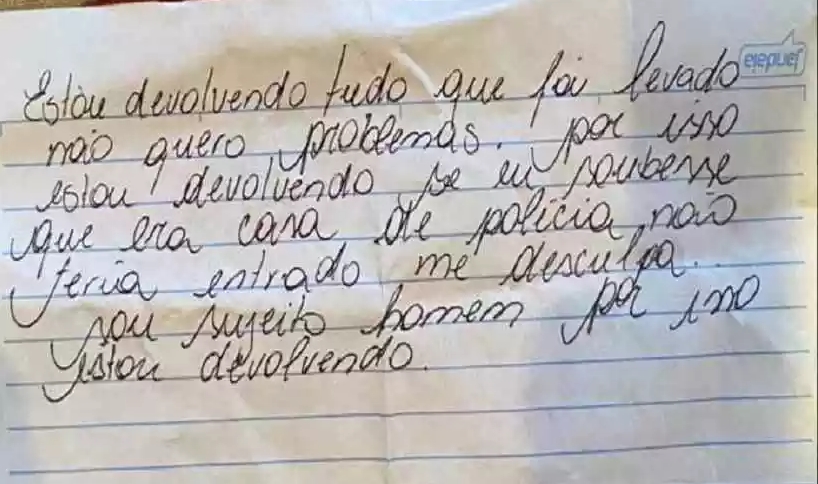 jandaia
Estou devolvendo tudo que foi levado
não quero problemas. por isso
estou devolvendo, se eu soubesse
que era casa de policia, não
teria entrado me desculpa..
sou sujeito homem por isso
estou devolvendo.